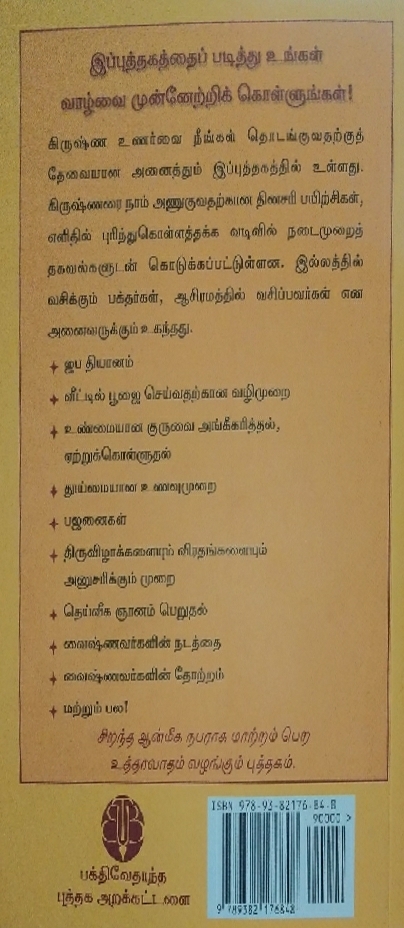 இப்புத்தகத்தைப் படித்து உங்கள்
வாழ்வை முன்னேற்றிக் கொள்ளுங்கள்!
கிருஷ்ண உணர்வை நீங்கள் தொடங்குவதற்குத்
தேவையான அனைத்தும் இப்புத்தகத்தில் உள்ளது.
கிருஷ்ணரை நாம் அணுகுவதற்கான தினசரி பயிற்சிகள்,
எளிதில் புரிந்துகொள்ளத்தக்க வடிவில் நடைமுறைத்
தகவல்களுடன் கொடுக்கப்பட்டுள்ளன. இல்லத்தில்
வசிக்கும் பக்தர்கள், ஆசிரமத்தில் வசிப்பவர்கள் என
அனைவருக்கும் உகந்தது.
ஜப தியானம்
வீட்டில் பூஜை செய்வதற்கான வழிமுறை
உண்மையான குருவை அங்கீகரித்தல்,
ஏற்றுக்கொள்ளுதல்
தூய்மையான உணவுமுறை
பஜனைகள்
திருவிழாக்களையும் விரதங்களையும்
அனுசரிக்கும் முறை
தெய்வீக ஞானம் பெறுதல்
வைஷ்ணவர்களின் நடத்தை
வைஷ்ணவர்களின் தோற்றம்
மற்றும் பல!
சிறந்த ஆன்மீக நபராக மாற்றம் பெற
உத்தரவாதம் வழங்கும் புத்தகம்.
ISBN 978-93-82176-84-8
90000 >
9 789382 176848
BBT
பக்திவேதாந்த
புத்தக அறக்கட்டளை